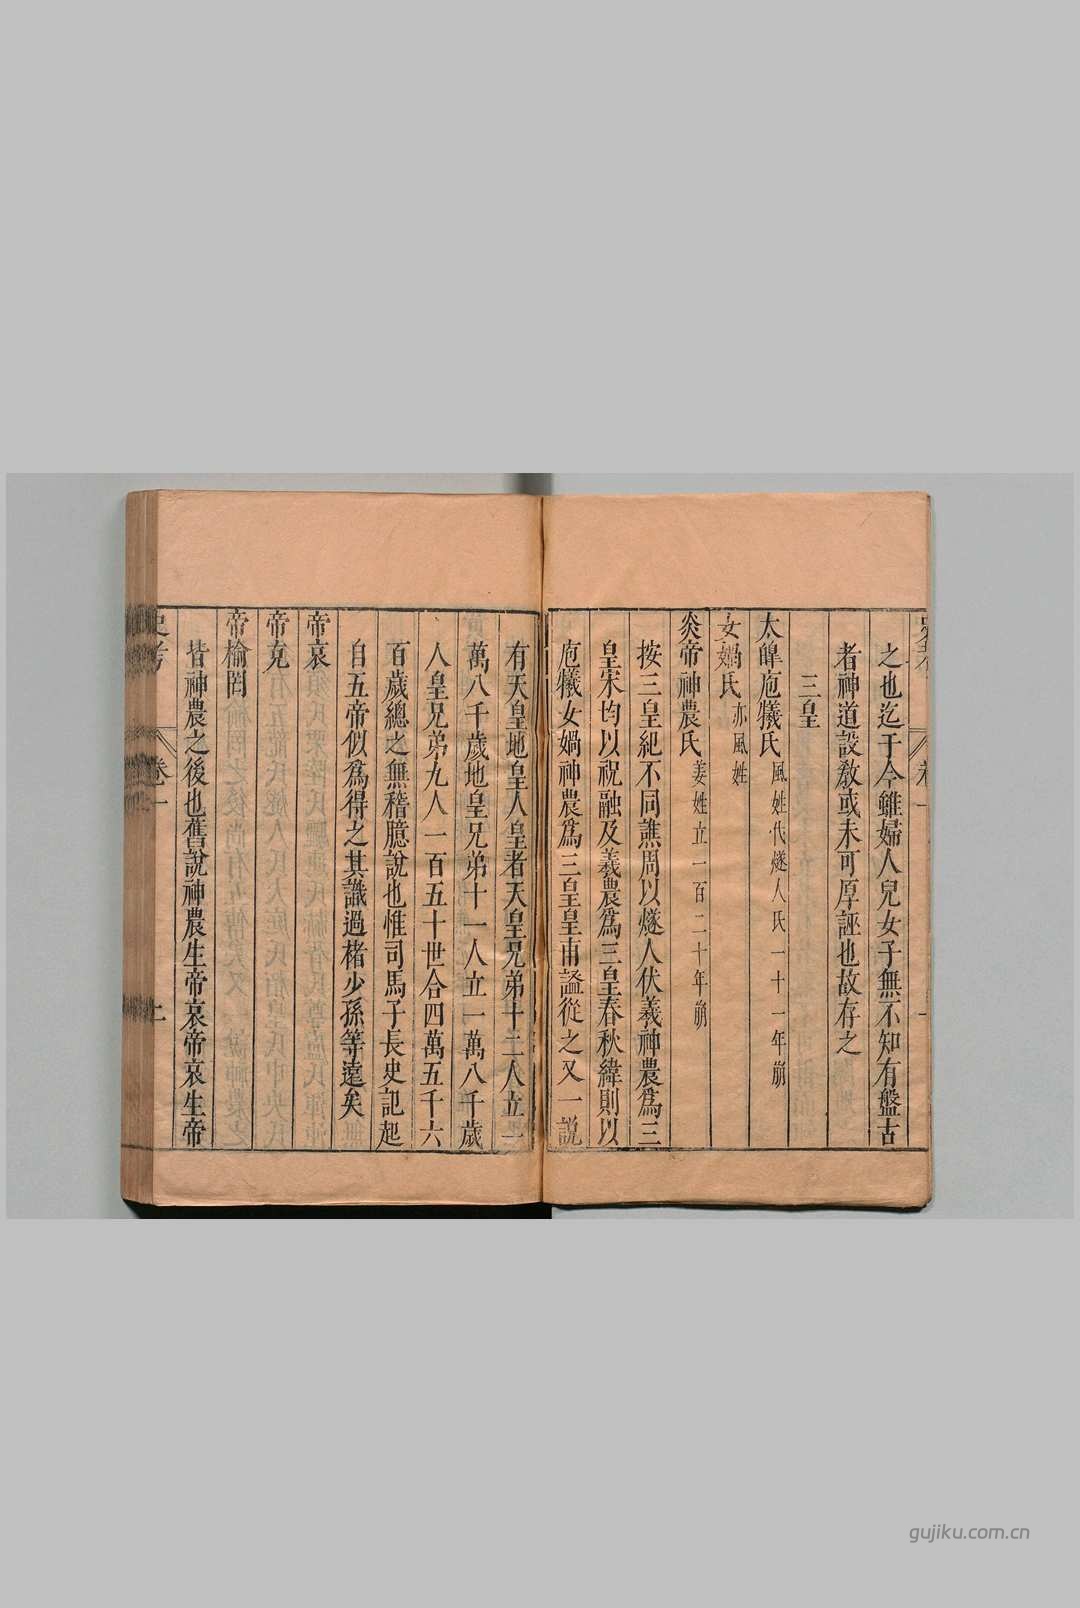 之也迄于今雖婦人兒女子無不知有盤古
者神道設敎或未可厚誣也故存之
三皇
太皥庖犧氏風姓代燧人氏一十一年崩
女媧氏亦風姓
炎帝神農氏姜姓立一百二十年崩
按三皇紀不同譙周以燧人伏羲神農爲三
皇宋均以祝融及羲農爲三皇春秋緯則以
庖犧女媧神農爲三皇皇甫謐從之又一說
有天皇地皇人皇者天皇兄弟十二人立一
萬八千歲地皇兄弟十一人立一萬八千歲
人皇兄弟九人一百五十世合四萬五千六
百歲總之無稽臆說也惟司馬子長史記起
自五帝似爲得之其識過楮少孫等遠矣
帝哀
帝克
帝榆罔
皆神農之後也舊說神農生帝哀帝哀生帝
史考
卷一
上
gujiku.com.cn